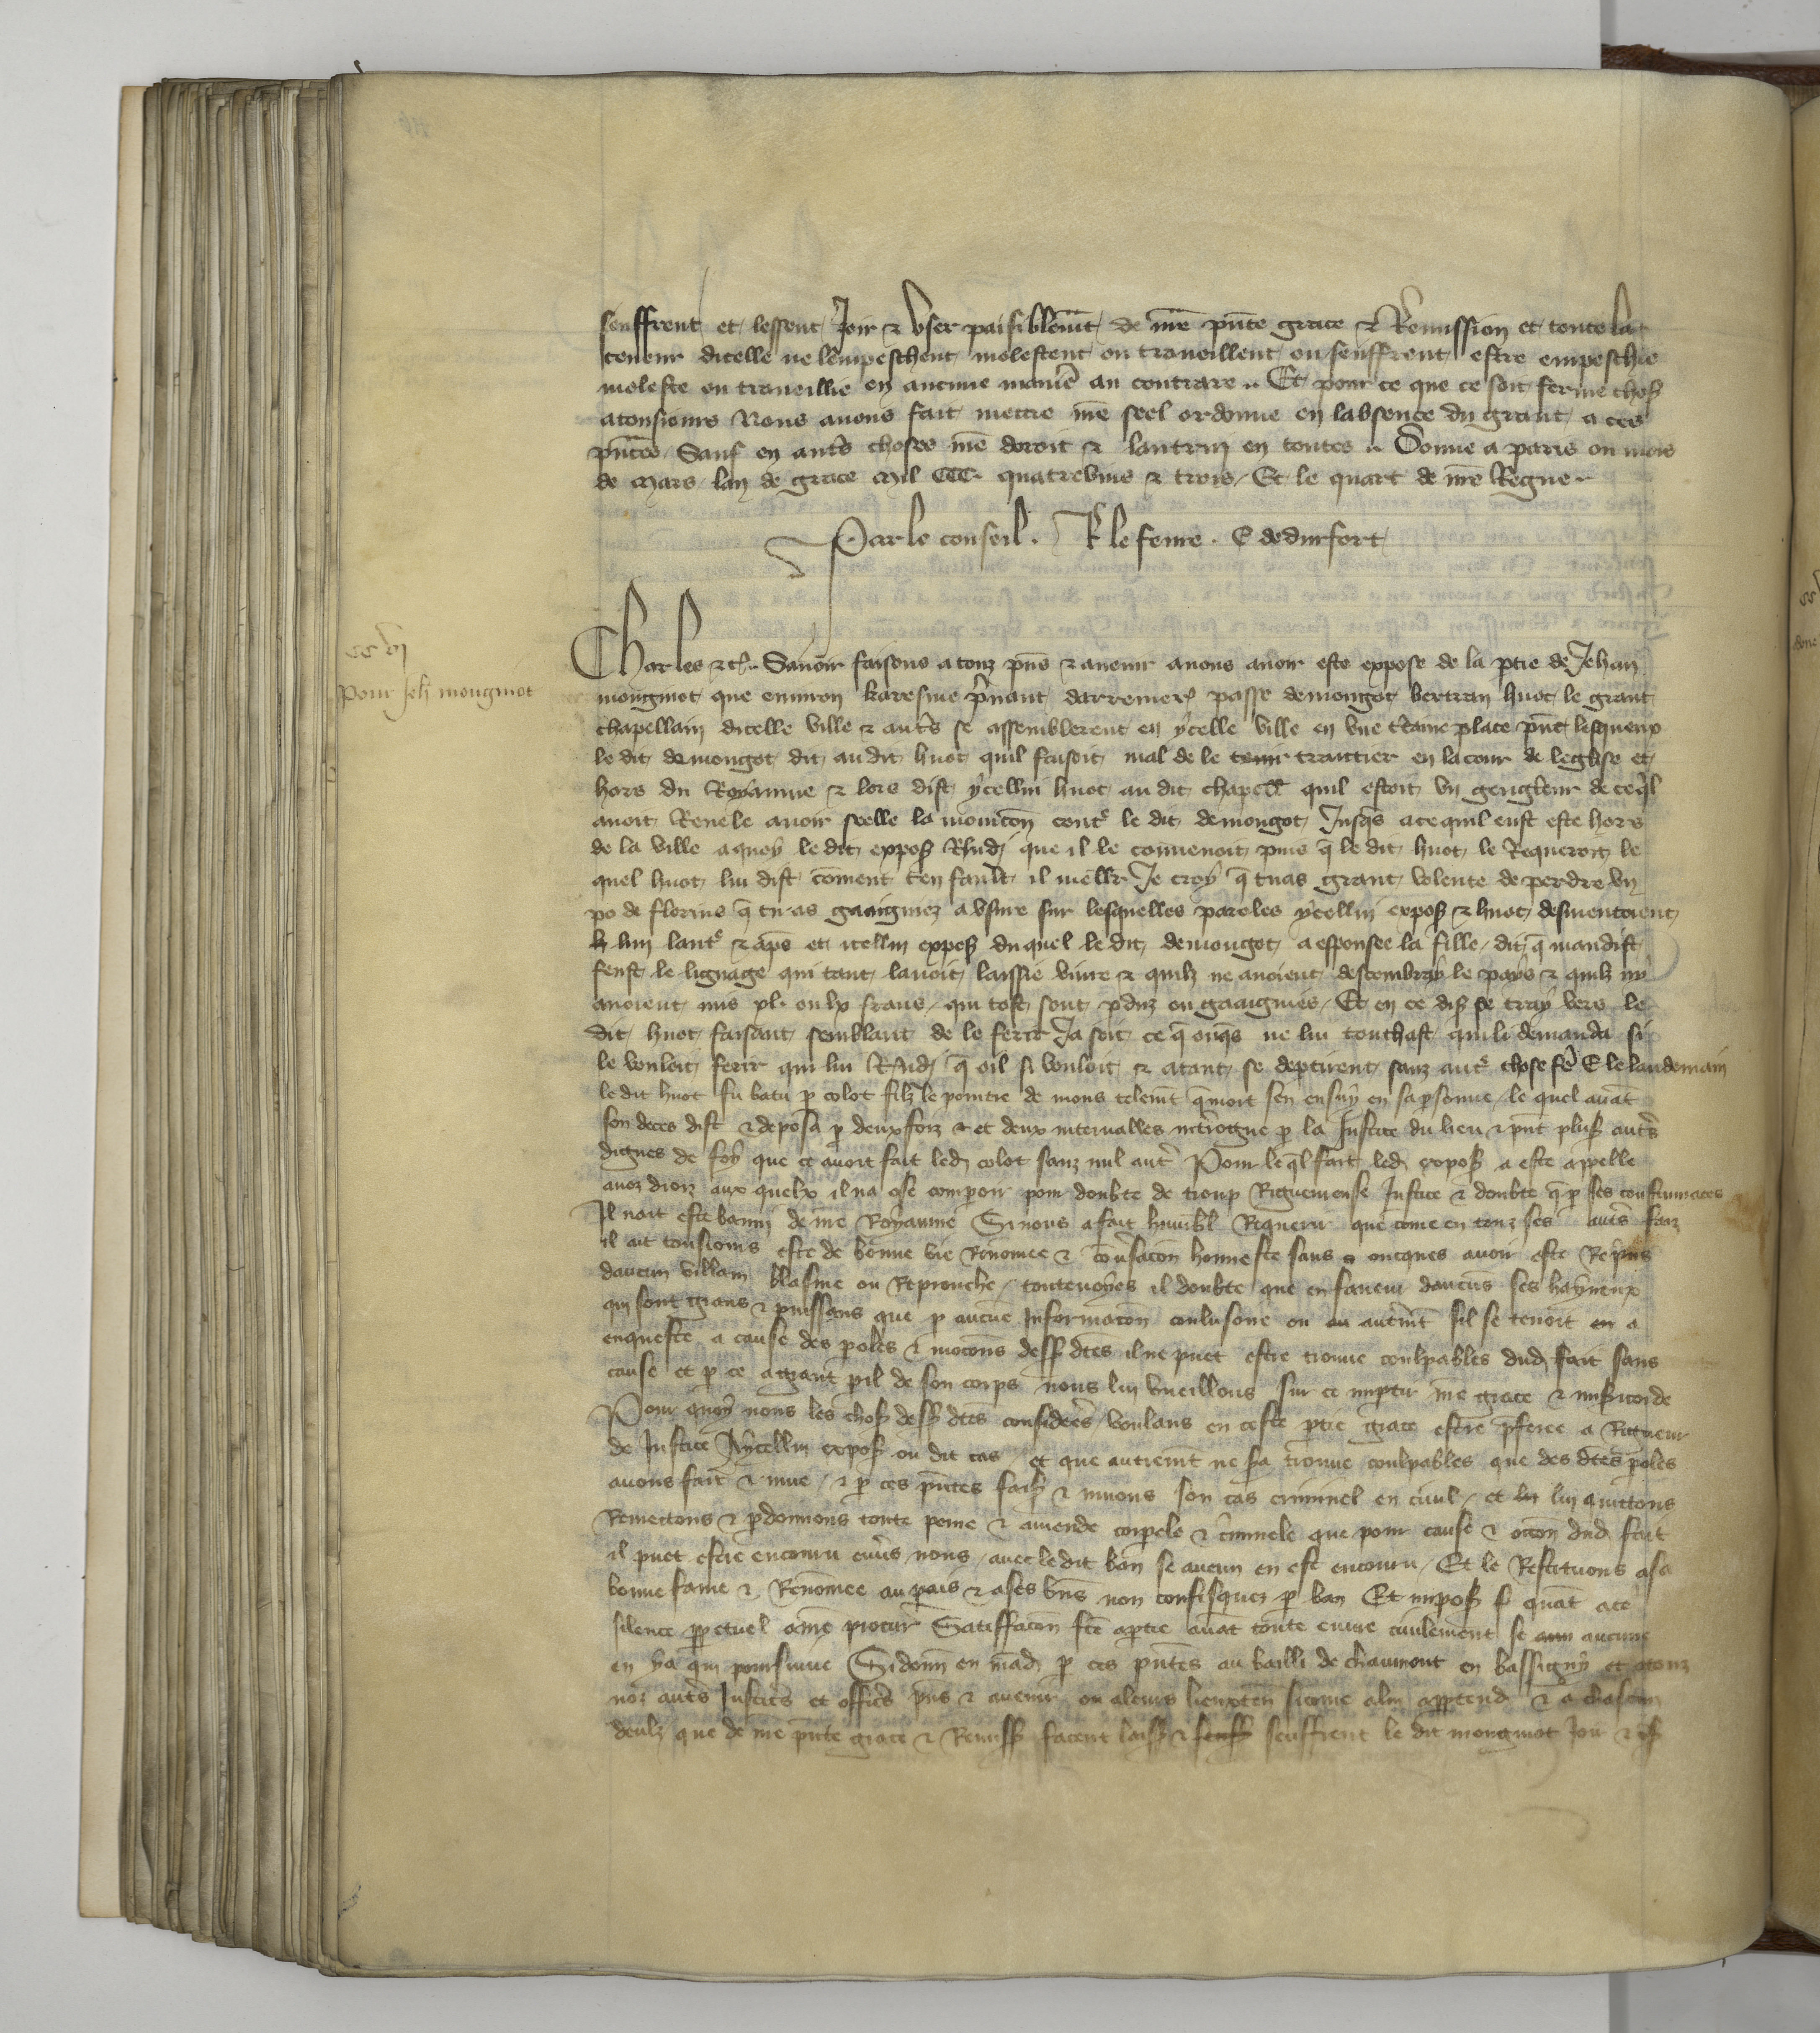 seuffrent et lessent Joir & vser paisiblemt de nre pnte grace & Remission et toute la
teneur dicelle ne lempeschent molestent ou traueillent ou seuffrent estre empeschie
moleste ou traueillie en aucune maniere au contrare Et pour ce que ce soit ferme chose
atousiours Nous auons fait mettre nre seel ordonne en labsence du grant a ces
pntes Sauf en autres choses nre droit & lautruy en toutes Donne a paris ou mois
de Mars lan de grace Mil CCC quatrevins & trois Et le quart de nre Regne
Par le conseil . le feure . E de durfort
CCVI
Pour Jeh mongmot
Charles &c. Sauoir faisons a touz pns & auenir a nous auoir este expose de la ptie de Jehan
mongmot que enuiron karesme prenant darrenier passe demongot bertran huot le grant
chapellain dicelle ville & autres se assemblerent en ycelle ville en vne ctaine place pnt lesqueux
le dit demongot dit au dit huot quil faisoit mal de le tenir traittier en la cour de leglise et
hors du Royaume & lors dist ycellui huot au dit chapell quil estoit vn gengleur de ce ql
auoit Reuele auoir seelle la monicon contre le dit demongot Jusqs a ce quil eust este hors
de la ville a quoy le dit expos Rndi que il le conuenoit puis q le dit huot le Requeroit le
quel huot lui dist coment ten fault il meller Je croy q tu as grant volente de perdre vn
po de florins q tu as gaaignez a vsure sur lesquelles paroles ycellui expos & huot desmentirent
lun lautre & apres et icellui expos du quel le dit demongot a espousee la fille dit q maudist
feust le lignage qui tant lauoit laissie viure & quilz ne auoient descombray le pays & quilz ny
auoient mis xl ou lx frans qui tost sont pduz ou gaaignies Et en ce dis se tray vers le
dit huot faisant semblant de le ferir Ja soit ce q onqs ne lui touchast qui li demanda si
le vouloit ferir qui lui Rndi q oil si vouloit & atant se deptirent sanz autre chose fe E le landemain
le dit huot fu batu p colot filz le pointre de mons telemt q mort sen ensuy en sa psonne le quel auat
son deces dist & deposa p deux foiz & et deux interualles interrogue p la Justice du lieu & pnt plus autres
dignes de foy que ce auoit fait led colot sanz nul autre Pour le ql fait led expos a este appelle
a noz droiz aux quelx il na ose comparoir pour doubte de troup Rigueureuse Justice & doubte q p ses contumaces
Il nait este banni de nre Royaume Si nous a fait humbl Requerir que come en touz ses autres faiz
il ait tousiours este de bonne vie Renomee & conuersacon honneste sans oncques auoir este Repris
daucun villain blasme ou Reprouche toutevoyes il doubte que en faueur daucuns ses hayneux
qui sont grans & puissans que p aucune Informacon conlusoire ou autremt sil se tenoit a
enqueste a cause des poles & mocons dess dtes il ne puet estre trouue coulpables dud fait sans
cause et p ce a grant pil de son corps nous lui vueillons sur ce impartir nre grace & misericorde
Pour quoy nous les choses dess dtes considerees voulans en ceste ptie grace estre pferee a Rigueur
de Justice A ycellui expos ou dit cas et que autremt ne sa trouue coulpables que des dtes poles
auons fait & mue & p ces pntes fais & muons son cas criminel en ciuil et lui quittons
Remettons & pdonnons toute peine & amende corpele & criminele que pour cause & occon dud fait
il puet estre encouru enuers nous auec le dit ban se aucun en est encouru Et le Restituons a sa
bonne fame & Renommee au pais & a ses bns non confisquez p ban Et impos s quat a ce
silence ppetuel a nre procur Satiffacon fte a ptie auat toute euure ciuilement se aucune
en ya qui poursuiue Si donn en mad p ces pntes au bailli de chaumont en bassigny et a touz
noz autres Justiciers et officiers pns & auenir ou a leurs lieuxten sicome a lui apptend & a chascun
deulx que de nre pnte grace & Remiss facent laiss & seuffrent le dit mongmot Joir & vs